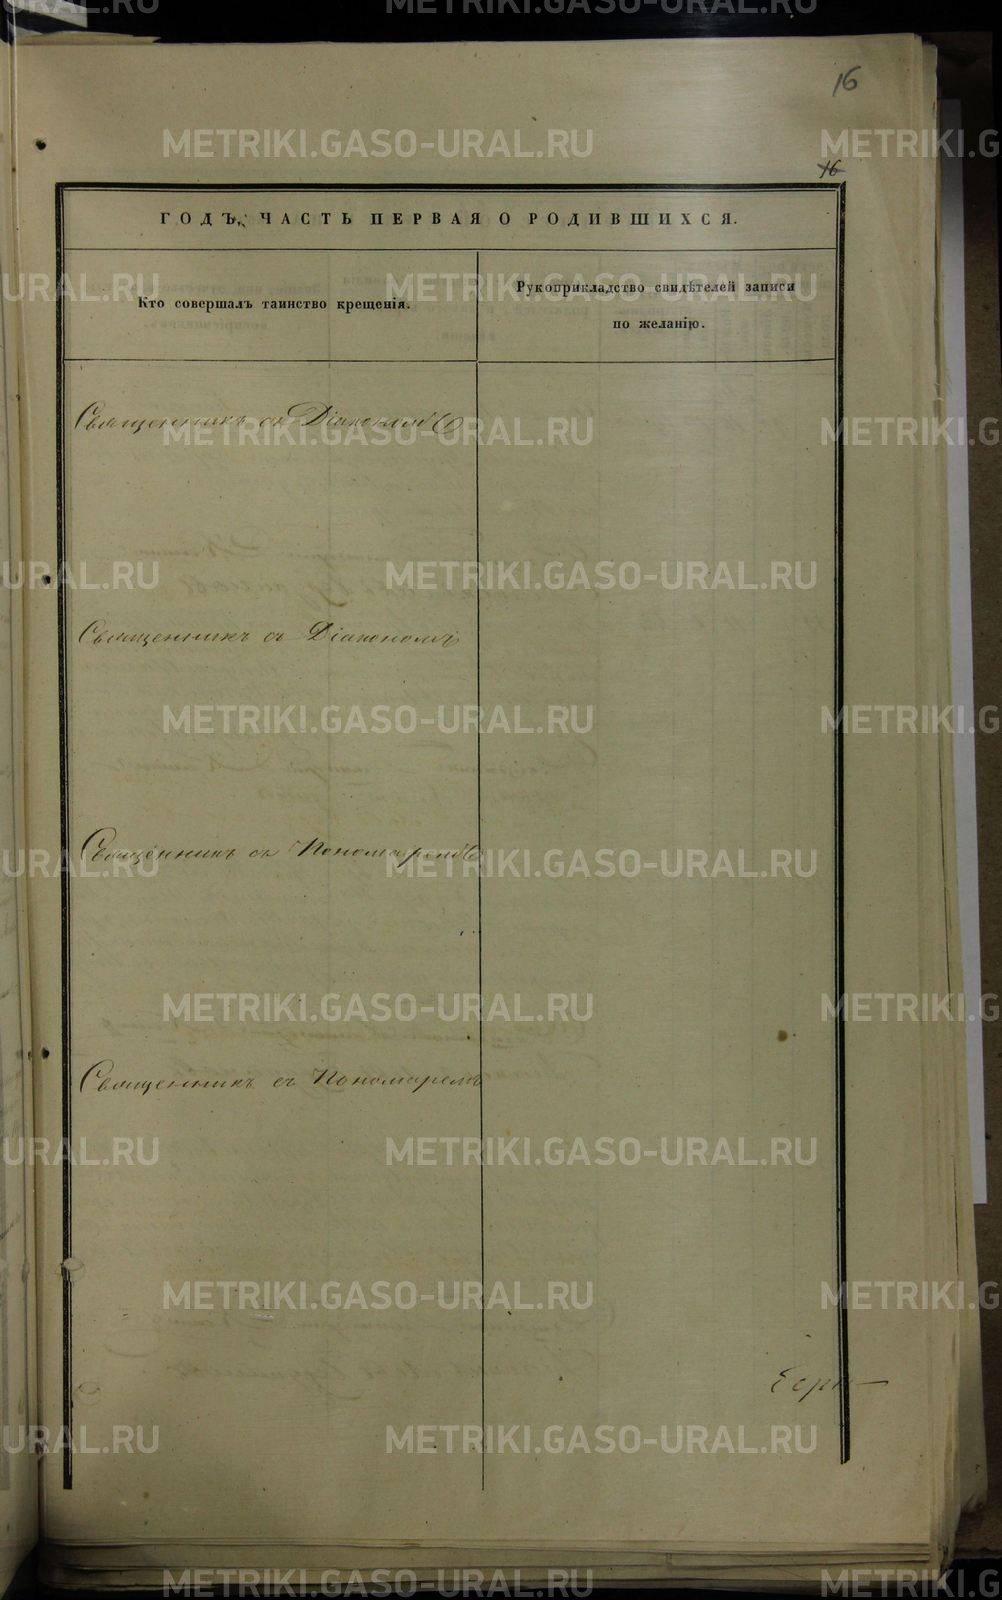 16
16
ГОДЪ, ЧАСТЬ ПЕРВАЯ О РОДИВШИХСЯ.
Кто совершалъ таинство крещенія.
Рукоприкладство свидѣтелей записи
по желанію.
Священникъ съ Діакономъ
Священникъ съ Діакономъ
Священникъ съ Пономаремъ
Священникъ съ Пономаремъ
METRIKI.GASO-URAL.RU